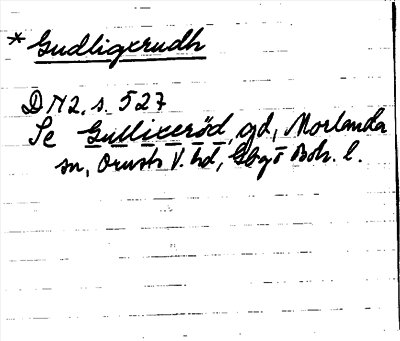 * Gudligerudh
DN 2. s. 527
Se Gullixeröd, gd, Morlanda
sn, Orusts V. hd, Gbg o Boh. l.